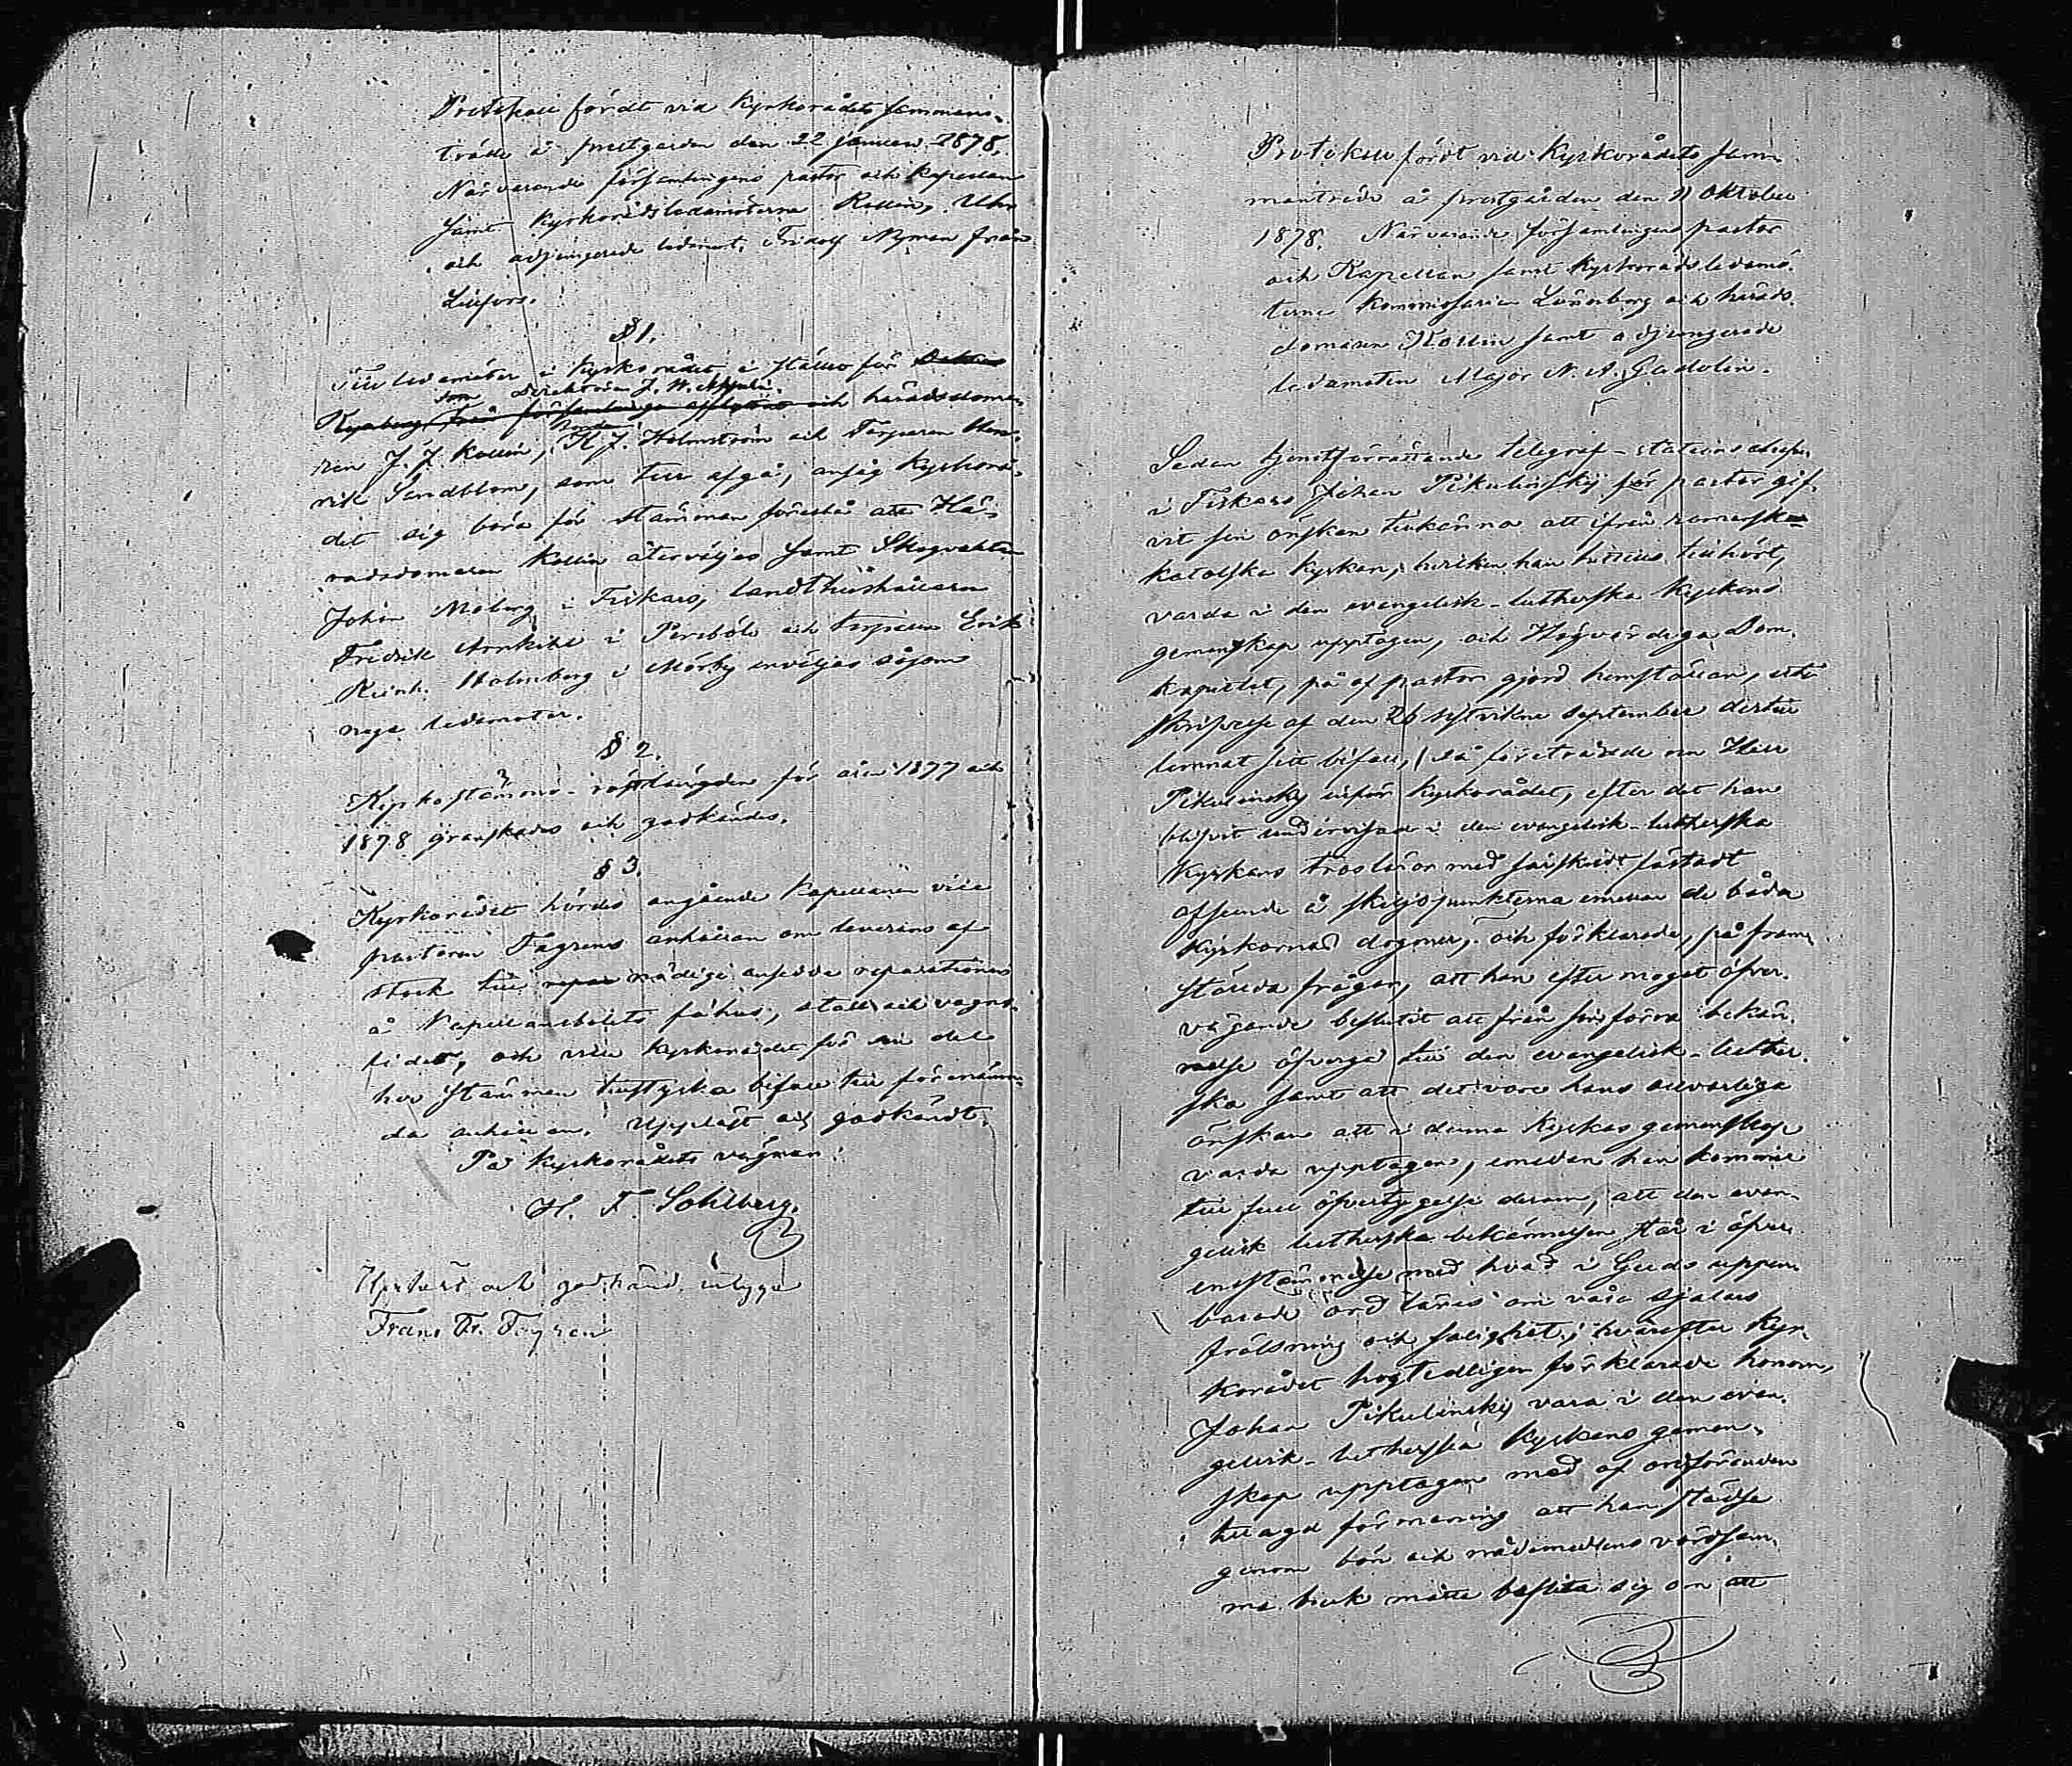 Protokoll fördt vid Kyrkorådets samman-
träde å prestgården den 22 januari 1878.
Närvarande församlingens pastor och kapellan
samt kyrkorådsledamöterna Kollin,
och adjungerade ledamot. Fridolf Nyman från
Lillfors.
§ 1.
Till ledamöter i kyrkorådet i stället för
som Direktören J. H.
Kynberg från församlingen afflyttat och häradsdoma-
ren J. J. Kollin, Bonden K. J. Holmström och Torparen Hen-
rik Sandblom, som tur afgå, ansåg Kyrkorå-
det sig böra för stämman föreslå att Hä-
radsdomaren Kollin återväljes samt Skogvaktaren
Johan Moberg i Fiskars, landthushållaren
Fredrik i Persböle och torparen Erik
Reinh. Holmberg i Mörby inväljas såsom
nya ledamöter.
§ 2.
Kyrkostämmo-röstlängden för åren 1877 och
1878 granskades och godkändes.
§ 3.
Kyrkorådet hördes angående Kapellanen vice
pastoren Fagrens anhållan om leverans af
stock till nödige ansedda reparationer
å Kapellansbolets fähus, stall och vagns-
lider, och ville kyrkorådet för sin del
hos Stämman tillstyrka bifall till förenämn-
da anhållan. Uppläst och godkändt.
På Kyrkorådets vägnar:
H. F. Sohlberg.
Uppläst och godkänd, intyga
Frans Fr. Fagren
Protokoll fördt vid Kyrkorådets sam-
manträde å prestgården den 11 Oktober
1878. Närvarande församlingens pastor
och Kapellan samt kyrkorådsledamö-
terne Kommissarien Lönnborg och härads-
domaren Kollin samt adjungerade
ledamoten Major N. A. Gadolin.
Sedan tjenstförrättande telegraf-stations
i Fiskars Johan Pikulinskij för pastor gif-
vit sin önskan tillkänna att ifrån romersk-
katolska kyrkan, hvilken han hittills tillhört,
varda i den evangelisk-lutherska kyrkans
gemenskap upptagen, och Högvördiga Dom-
kapitlet, på af pastor gjord hemställan, uti
skrifvelse af den 26 sistvikne september dertill
lemnat sitt bifall, så företrädde nu Herr
Pikulinsky inför kyrkorådet, efter det han
blifvit undervisad i den evangelisk-lutherska
Kyrkans troslära med särskildt fästadt
afseende å skiljopunkterna emellan de båda
kyrkornas dogmer, och förklarade, på fram-
ställda frågor, att han efter moget öfver-
vägande beslutit att från sin förra bekän-
nelse öfvergå till den evangelisk-luther-
ska samt att det vore hans allvarliga
önskan att i denna kyrkas gemenskap
varda upptagen, emedan han kommit
till full öfvertygelse derom, att den evan-
gelisk lutherska bekännelsen står i öfver-
ensstämmelse med hvad i Guds uppen-
barade ord läres om våra själars
frälsning och salighet; hvarefter Kyr-
korådet högtidligen förklarade honom,
Johan Pikulinskij vara i den evan-
gelisk-lutherska kyrkans gemen-
skap upptagen med af ordföranden
tillagd förmaning att han städse
genom bön och nådemedlens vördsam-
ma bruk måtte beflita sig om att